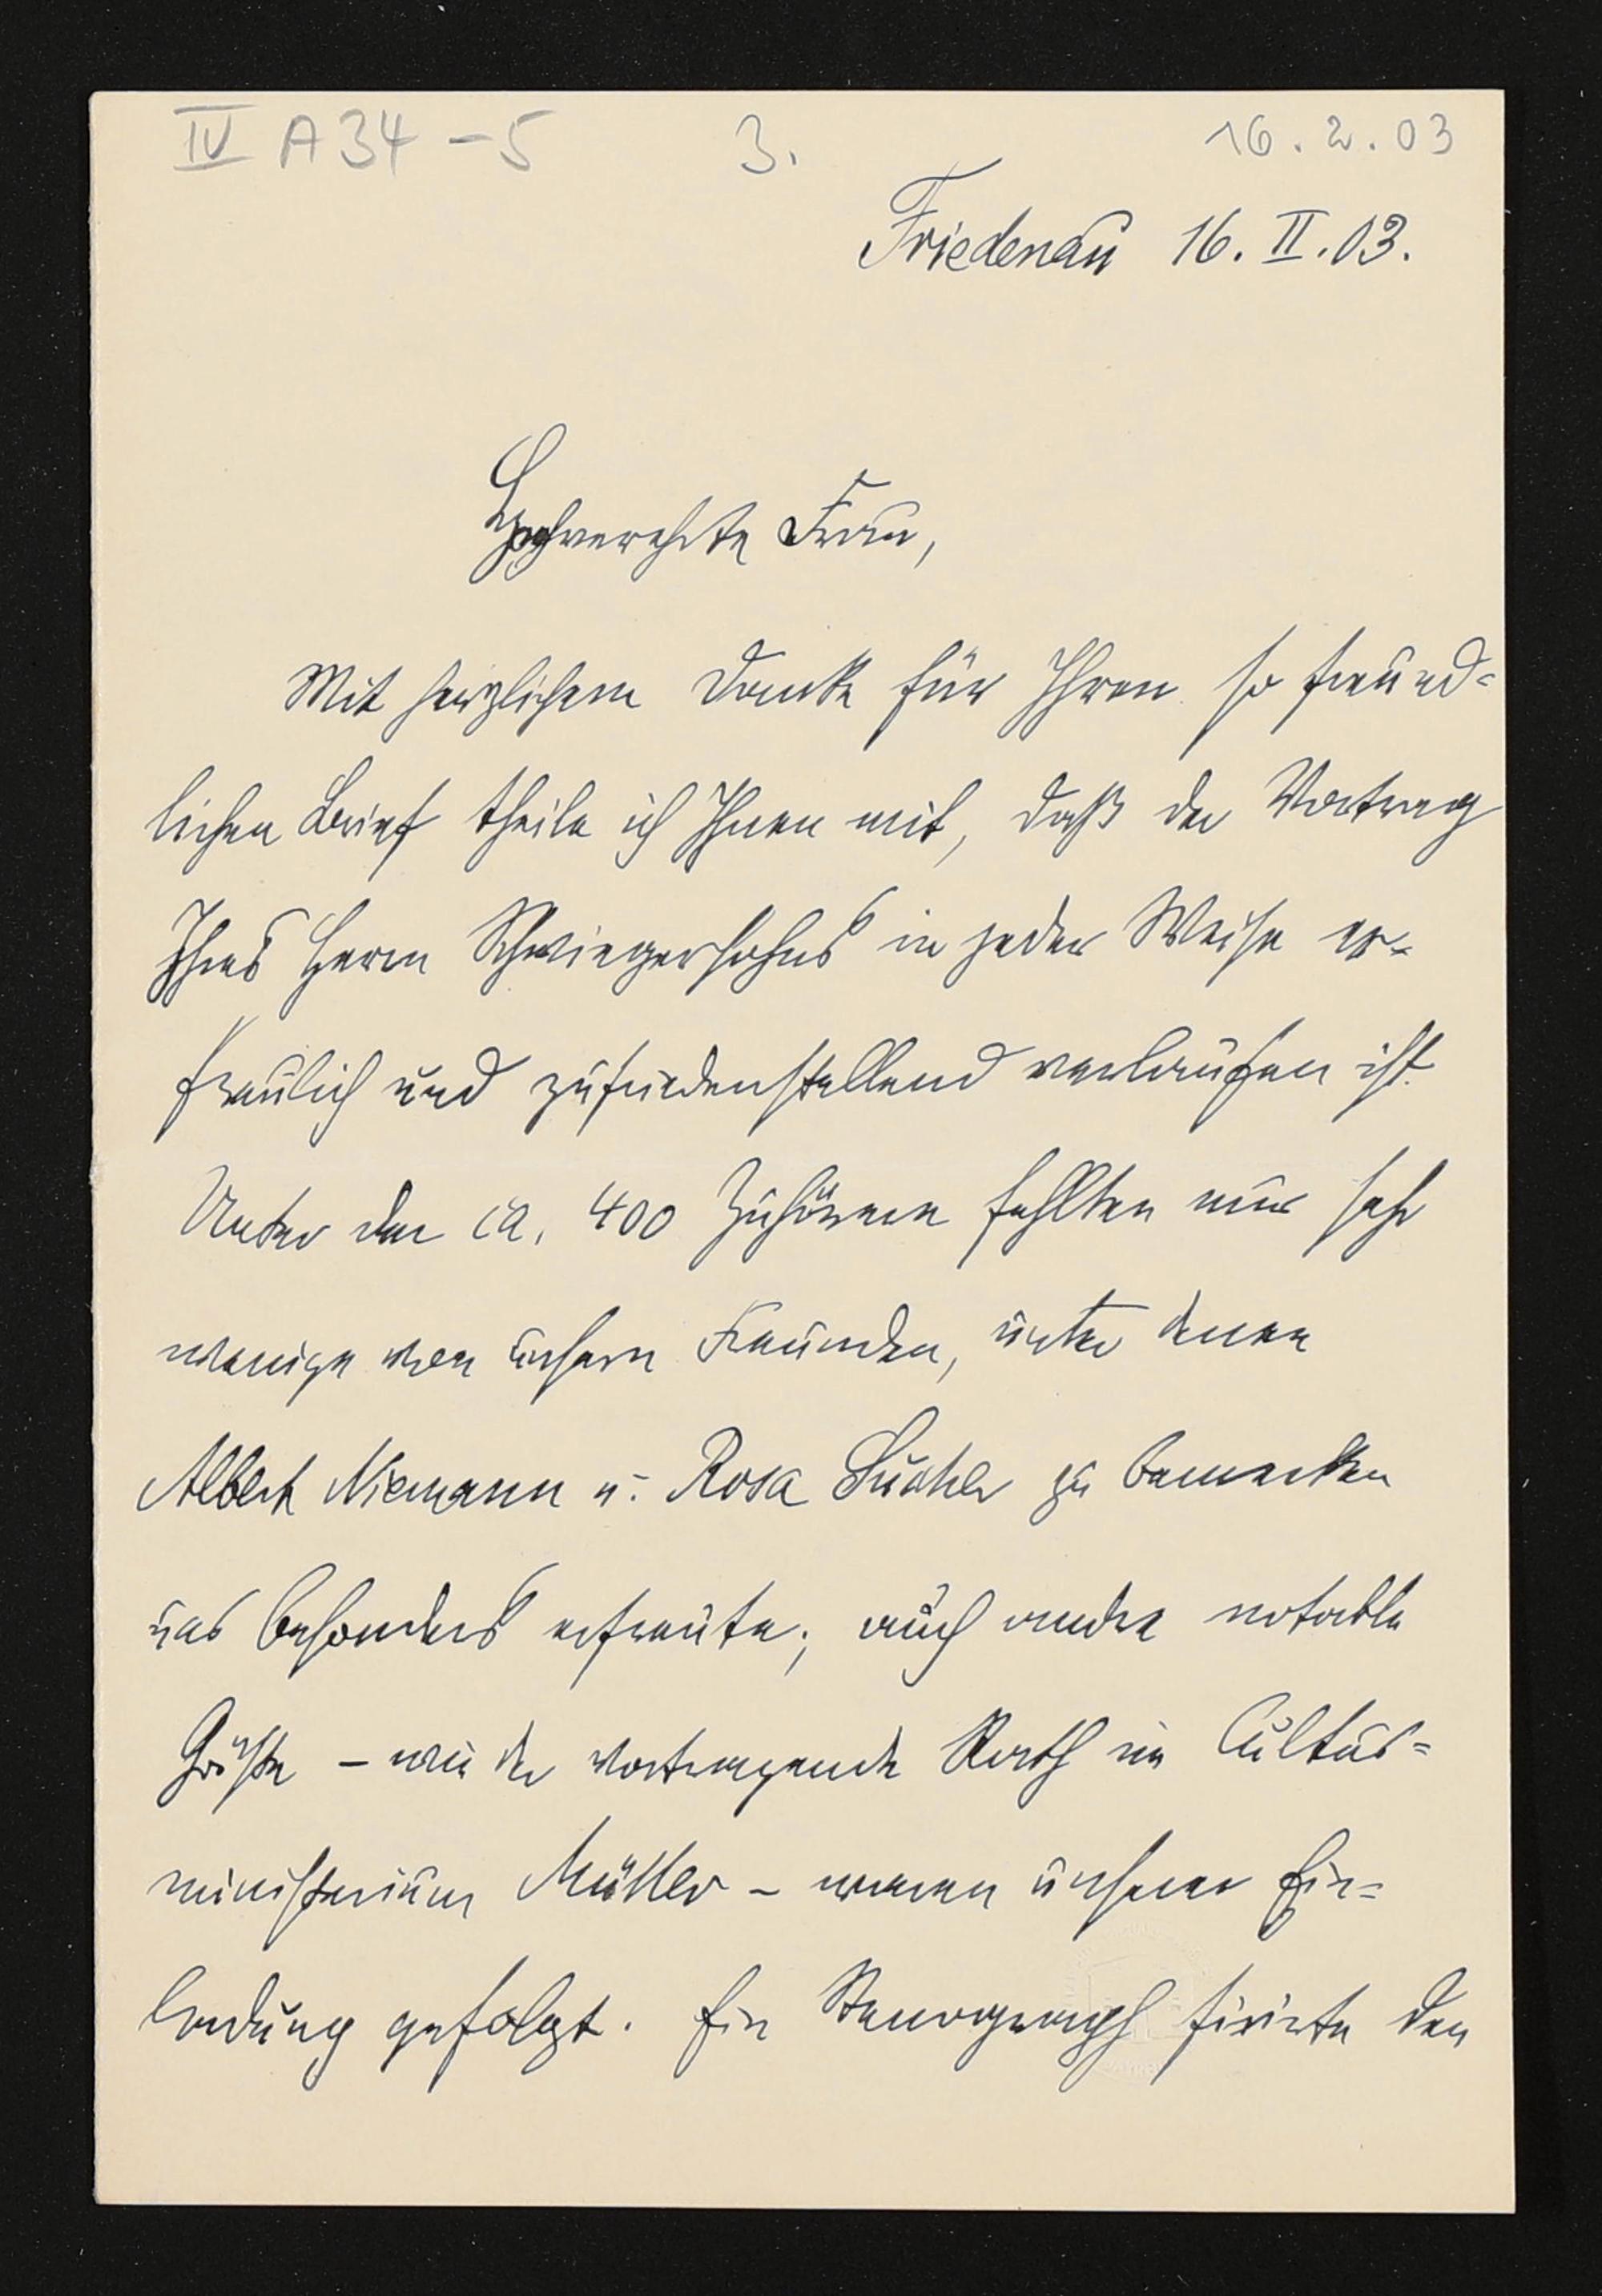 IV A 34 - 5 3. 16.2.03
Friedenau 16. II. 03.
Hochverehrte Frau,
Mit herzlichem Danke für Ihren so freund-
lichen Brief theile ich Ihnen mit, daß der Vortrag
Ihres Herrn Schwiegersohns in jeder Weise er-
freulich und zufriedenstellend verlaufen ist.
Unter den ca. 400 Zuhörern fehlten nur sehr
wenige von unsern Freunden, unter denen
Albert Niemann u. Rosa Sucher zu bemerken
uns besonders erfreute; auch andre notable
Gäste – wie der vortragende Rath im Cultus-
ministerium Müller – waren unserer Ein-
ladung gefolgt. Ein Stenograph fixirte den